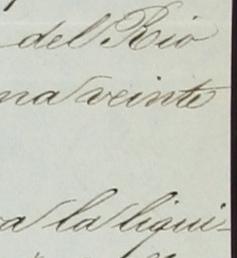 del Rio
na veinte
a la liqui-